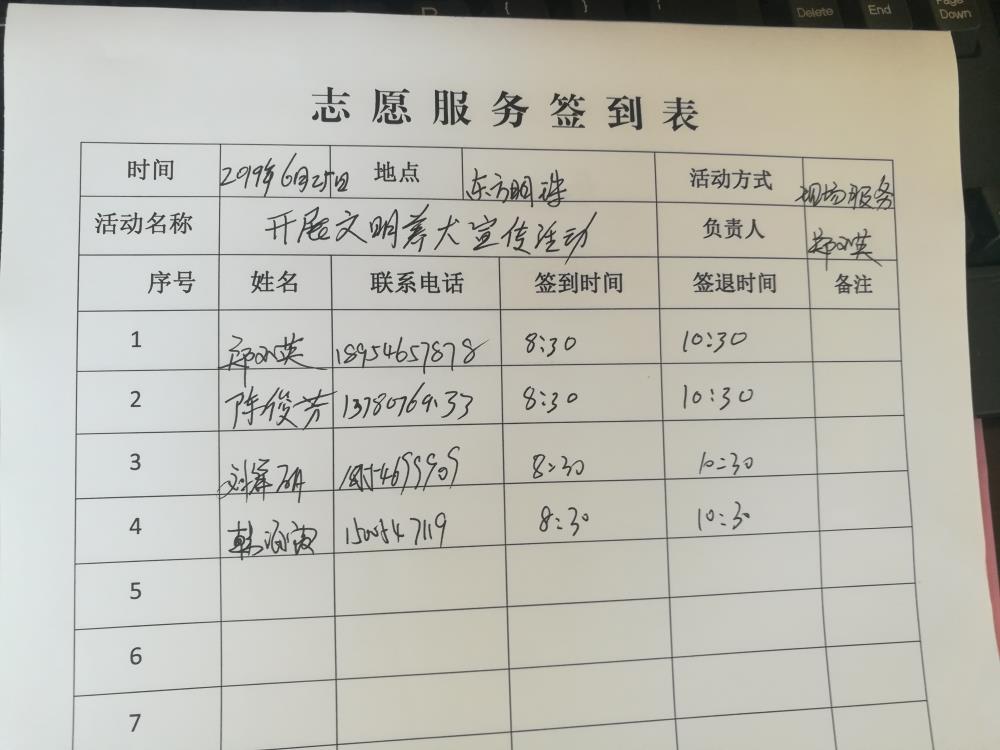 Delete End Page Down
志愿服务签到表
时间 2019年6月25日 地点 东方明珠 活动方式 现场服务
活动名称 开展文明养犬宣传活动 负责人
序号 姓名 联系电话 签到时间 签退时间 备注
1 18954657878 8:30 10:30
2 陈俊芳 8:30 10:30
3 8:30 10:30
4 8:30 10:30
5
6
7